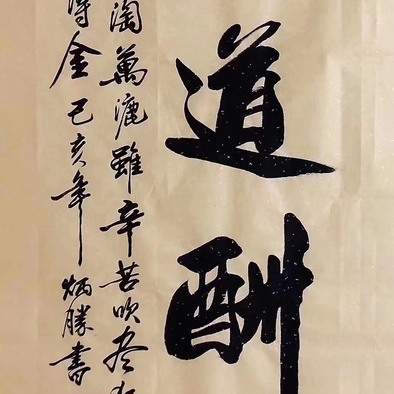 道酬
淘萬漉雖辛苦吹盡
金己亥年炳勝書